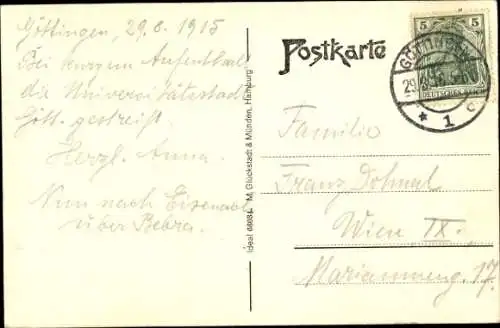 Göttingen, 29.8.1915
Bei kurzem Aufenthalt
die Universitätsstadt
Gött. gestreift.
Herzl. Anna.
Nun nach Eisenach
über Bebra.
Ideal 44684 M. Glückstadt & Münden, Hamburg
Postkarte
5 5
DEUTSCHES REICH
GÖTTINGEN
* 1 c
Familie
Franz Dohnal
Wien IX.
Marianneng. 17.